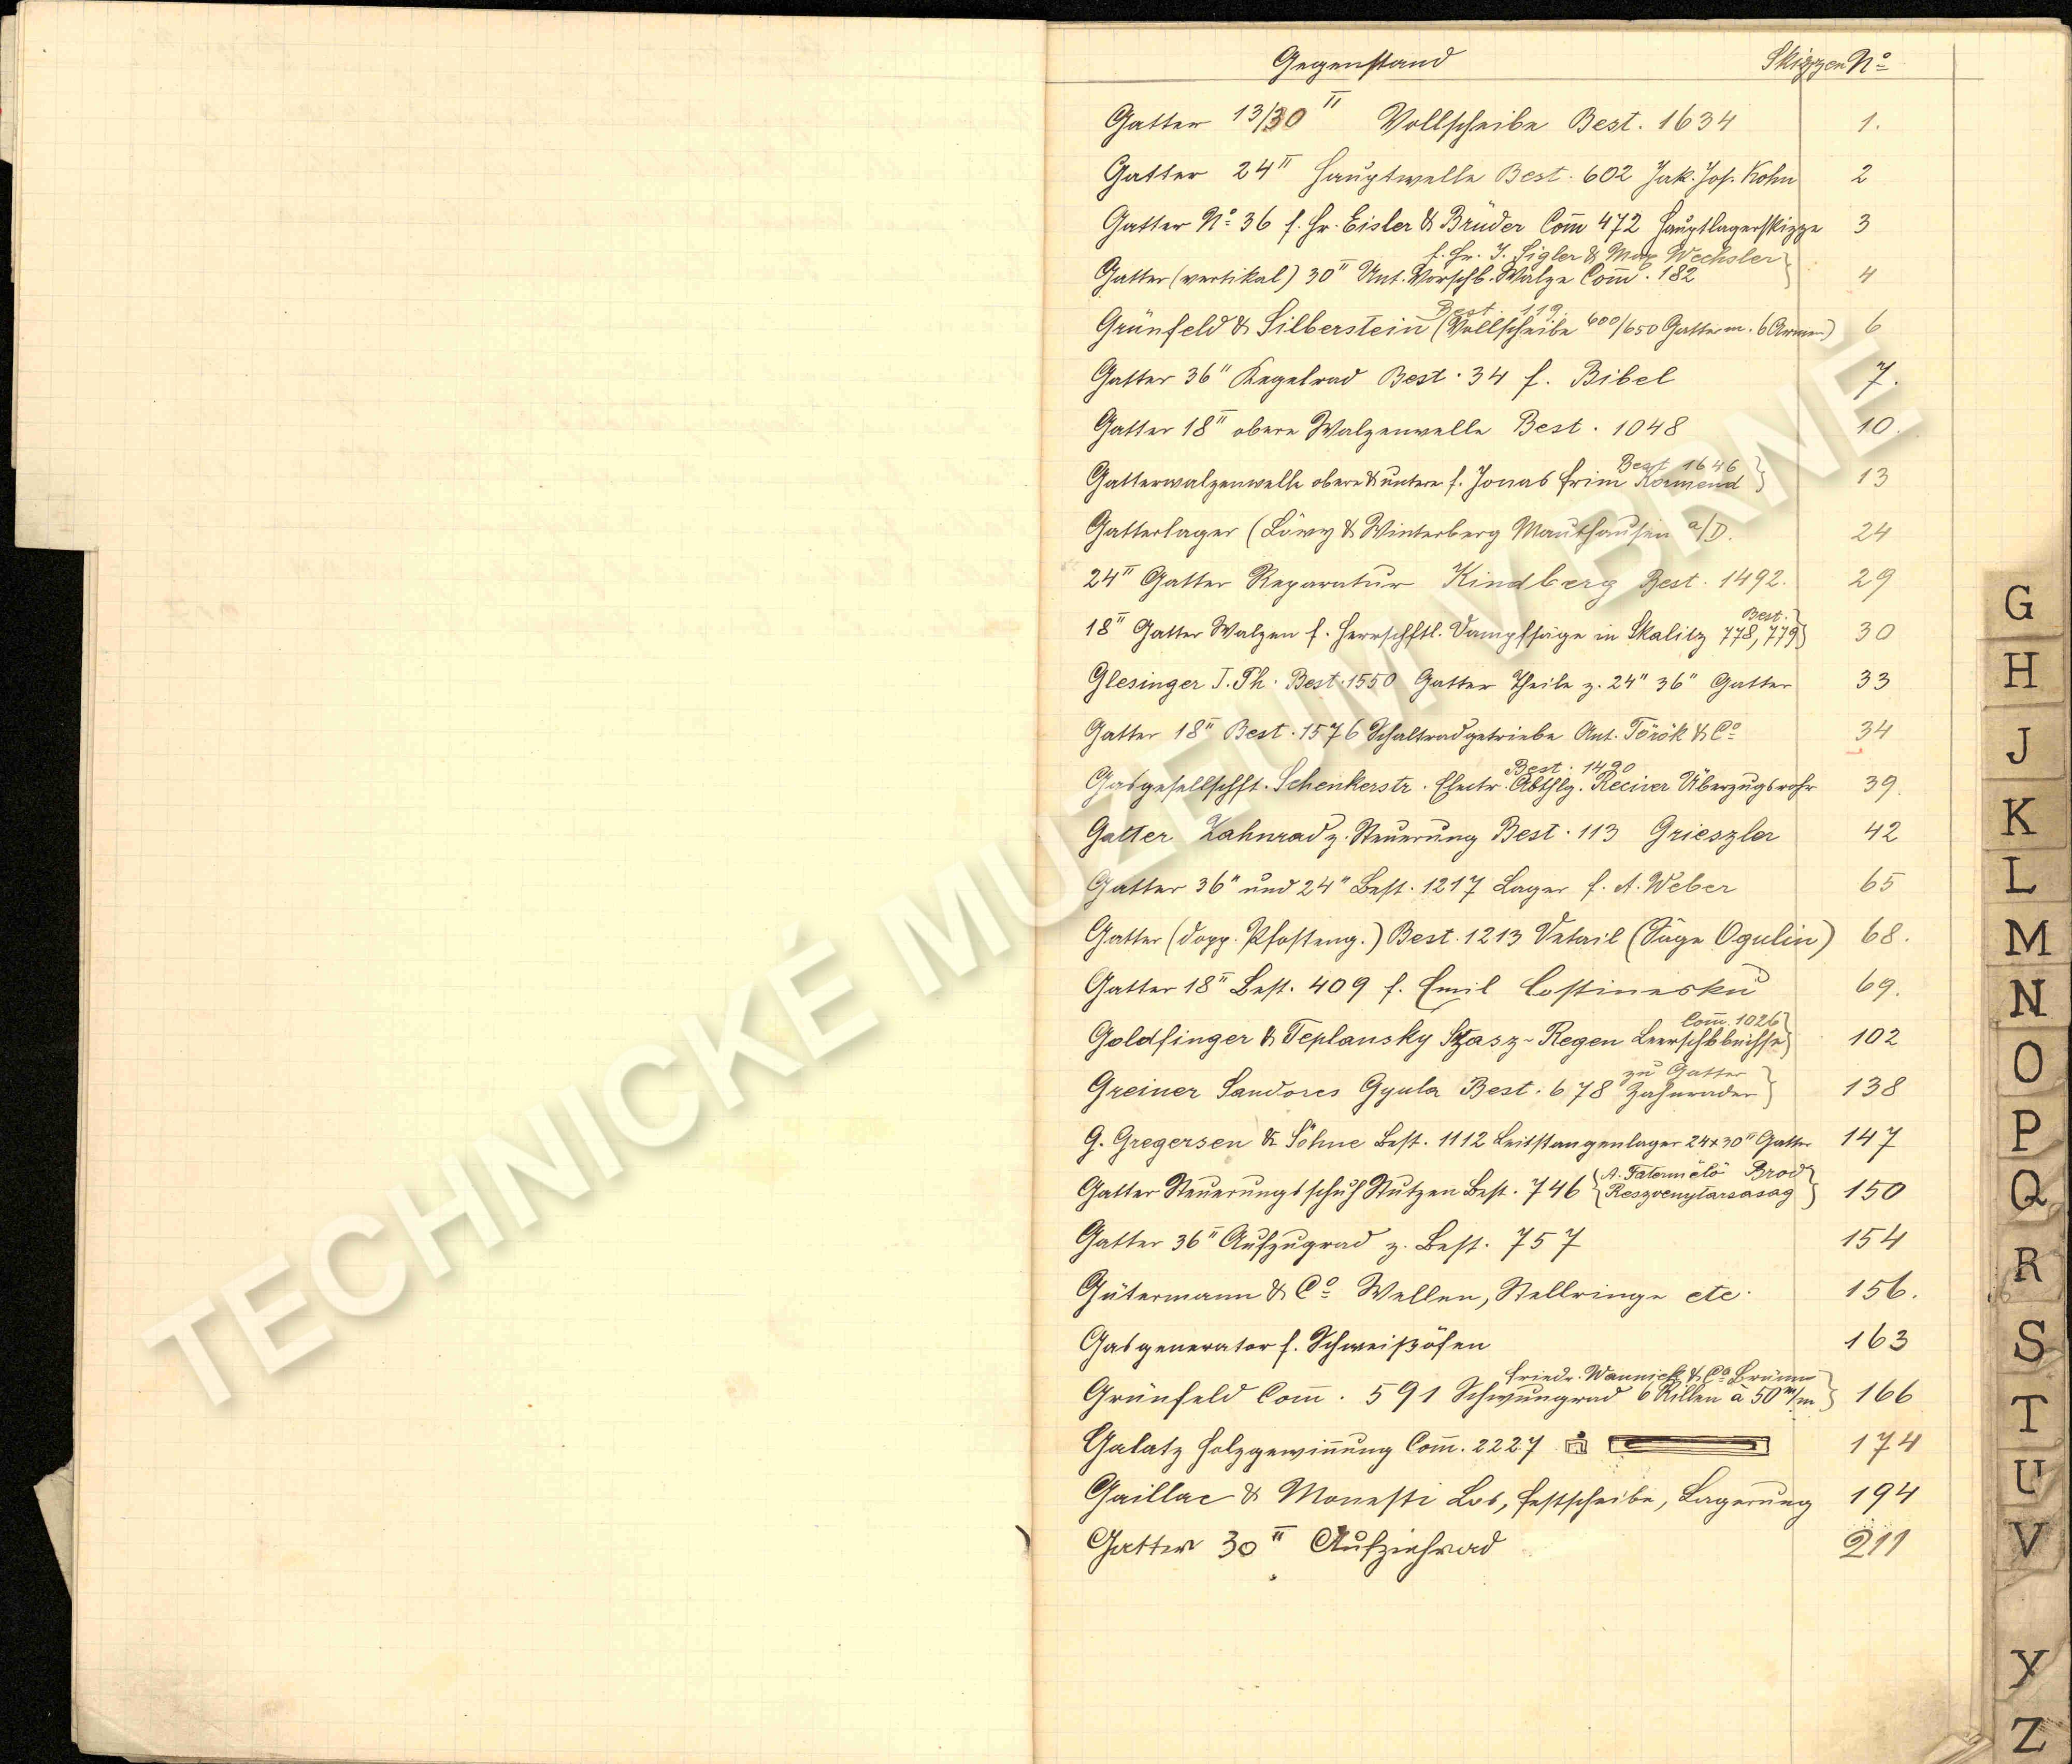 Gegenstand Skizzen No
Gatter 13/30" Vollscheibe Best. 1634 1.
Gatter 24" Hauptwelle Best. 602 Jak. Jos. Kohn 2
Gatter No 36 f. Hr. Eisler & Brüder Com̄ 472 Hauptlagerskizze 3
f. Hr. J. Sigler & Max Wechsler
Gatter (vertikal) 30" Unt. Vorschb. Walze Com̄. 182 4
Best. 119.
Grünfeld & Silberstein (Vollscheibe 600/650 Gatter m. 6 Armen) 6
Gatter 36" Kegelrad Best. 34 f. Bibel 7.
Gatter 18" obere Walzenwelle Best. 1048 10.
Best 1646
Gatterwalzenwelle obere & untere f. Jonas Frim Körmend 13
Gatterlager (Löwy & Winterberg Mauthausen a/D. 24
24" Gatter Reparatur Kindberg Best. 1492. 29
Best.
18" Gatter Walzen f. Herrschftl. Dampfsäge in Skalitz 778, 779 30
Glesinger J. Ph. Best. 1550 Gatter Theile z. 24" 36" Gatter 33
Gatter 18" Best. 1576 Schaltradgetriebe Ant. Török & Co 34
Best. 1490
Gasgesellschft. Schenkerstr. Electr. Abthlg. Reciver Überzugsrohr 39.
Gatter Zahnrad z. Steuerung Best. 113 Grieszler 42
Gatter 36" und 24" Best. 1217 Lager f. A. Weber 65
Gatter (dopp. Pfosteng.) Best. 1213 Detail (Säge Ogulin) 68.
Gatter 18" Best. 409 f. Emil Costinesku 69.
Com̄. 1026
Goldfinger & Teplansky Szasz-Regen Leerschbbüchse 102
zu Gatter
Greiner Sandores Gyula Best. 678 Zahnrader 138
G. Gregersen & Söhne Best. 1112 Leitstangenlager 24x30" Gatter 147
A. Brod
Gatter Steuerungsschuh Stutzen Best. 746 Reszvenytarsasag 150
Gatter 36" Aufzugrad z. Best. 757 154
Gütermann & Co Wellen, Stellringe etc. 156.
Gasgenerator f. Schweißöfen 163
Friedr. Wannieck & Co Brünn
Grünfeld Com̄. 591 Schwungrad 6 Rillen à 50 m/m 166
Galatz Holzgewin̄ung Com̄. 2227 174
Gaillac & Monesti Los, Festscheibe, Lagerung 194
Gatter 30" Aufziehrad 211
G
H
J
K
L
M
N
O
P
Q
R
S
T
U
V
Y
Z
TECHNICKÉ MUZEUM V BRNĚ